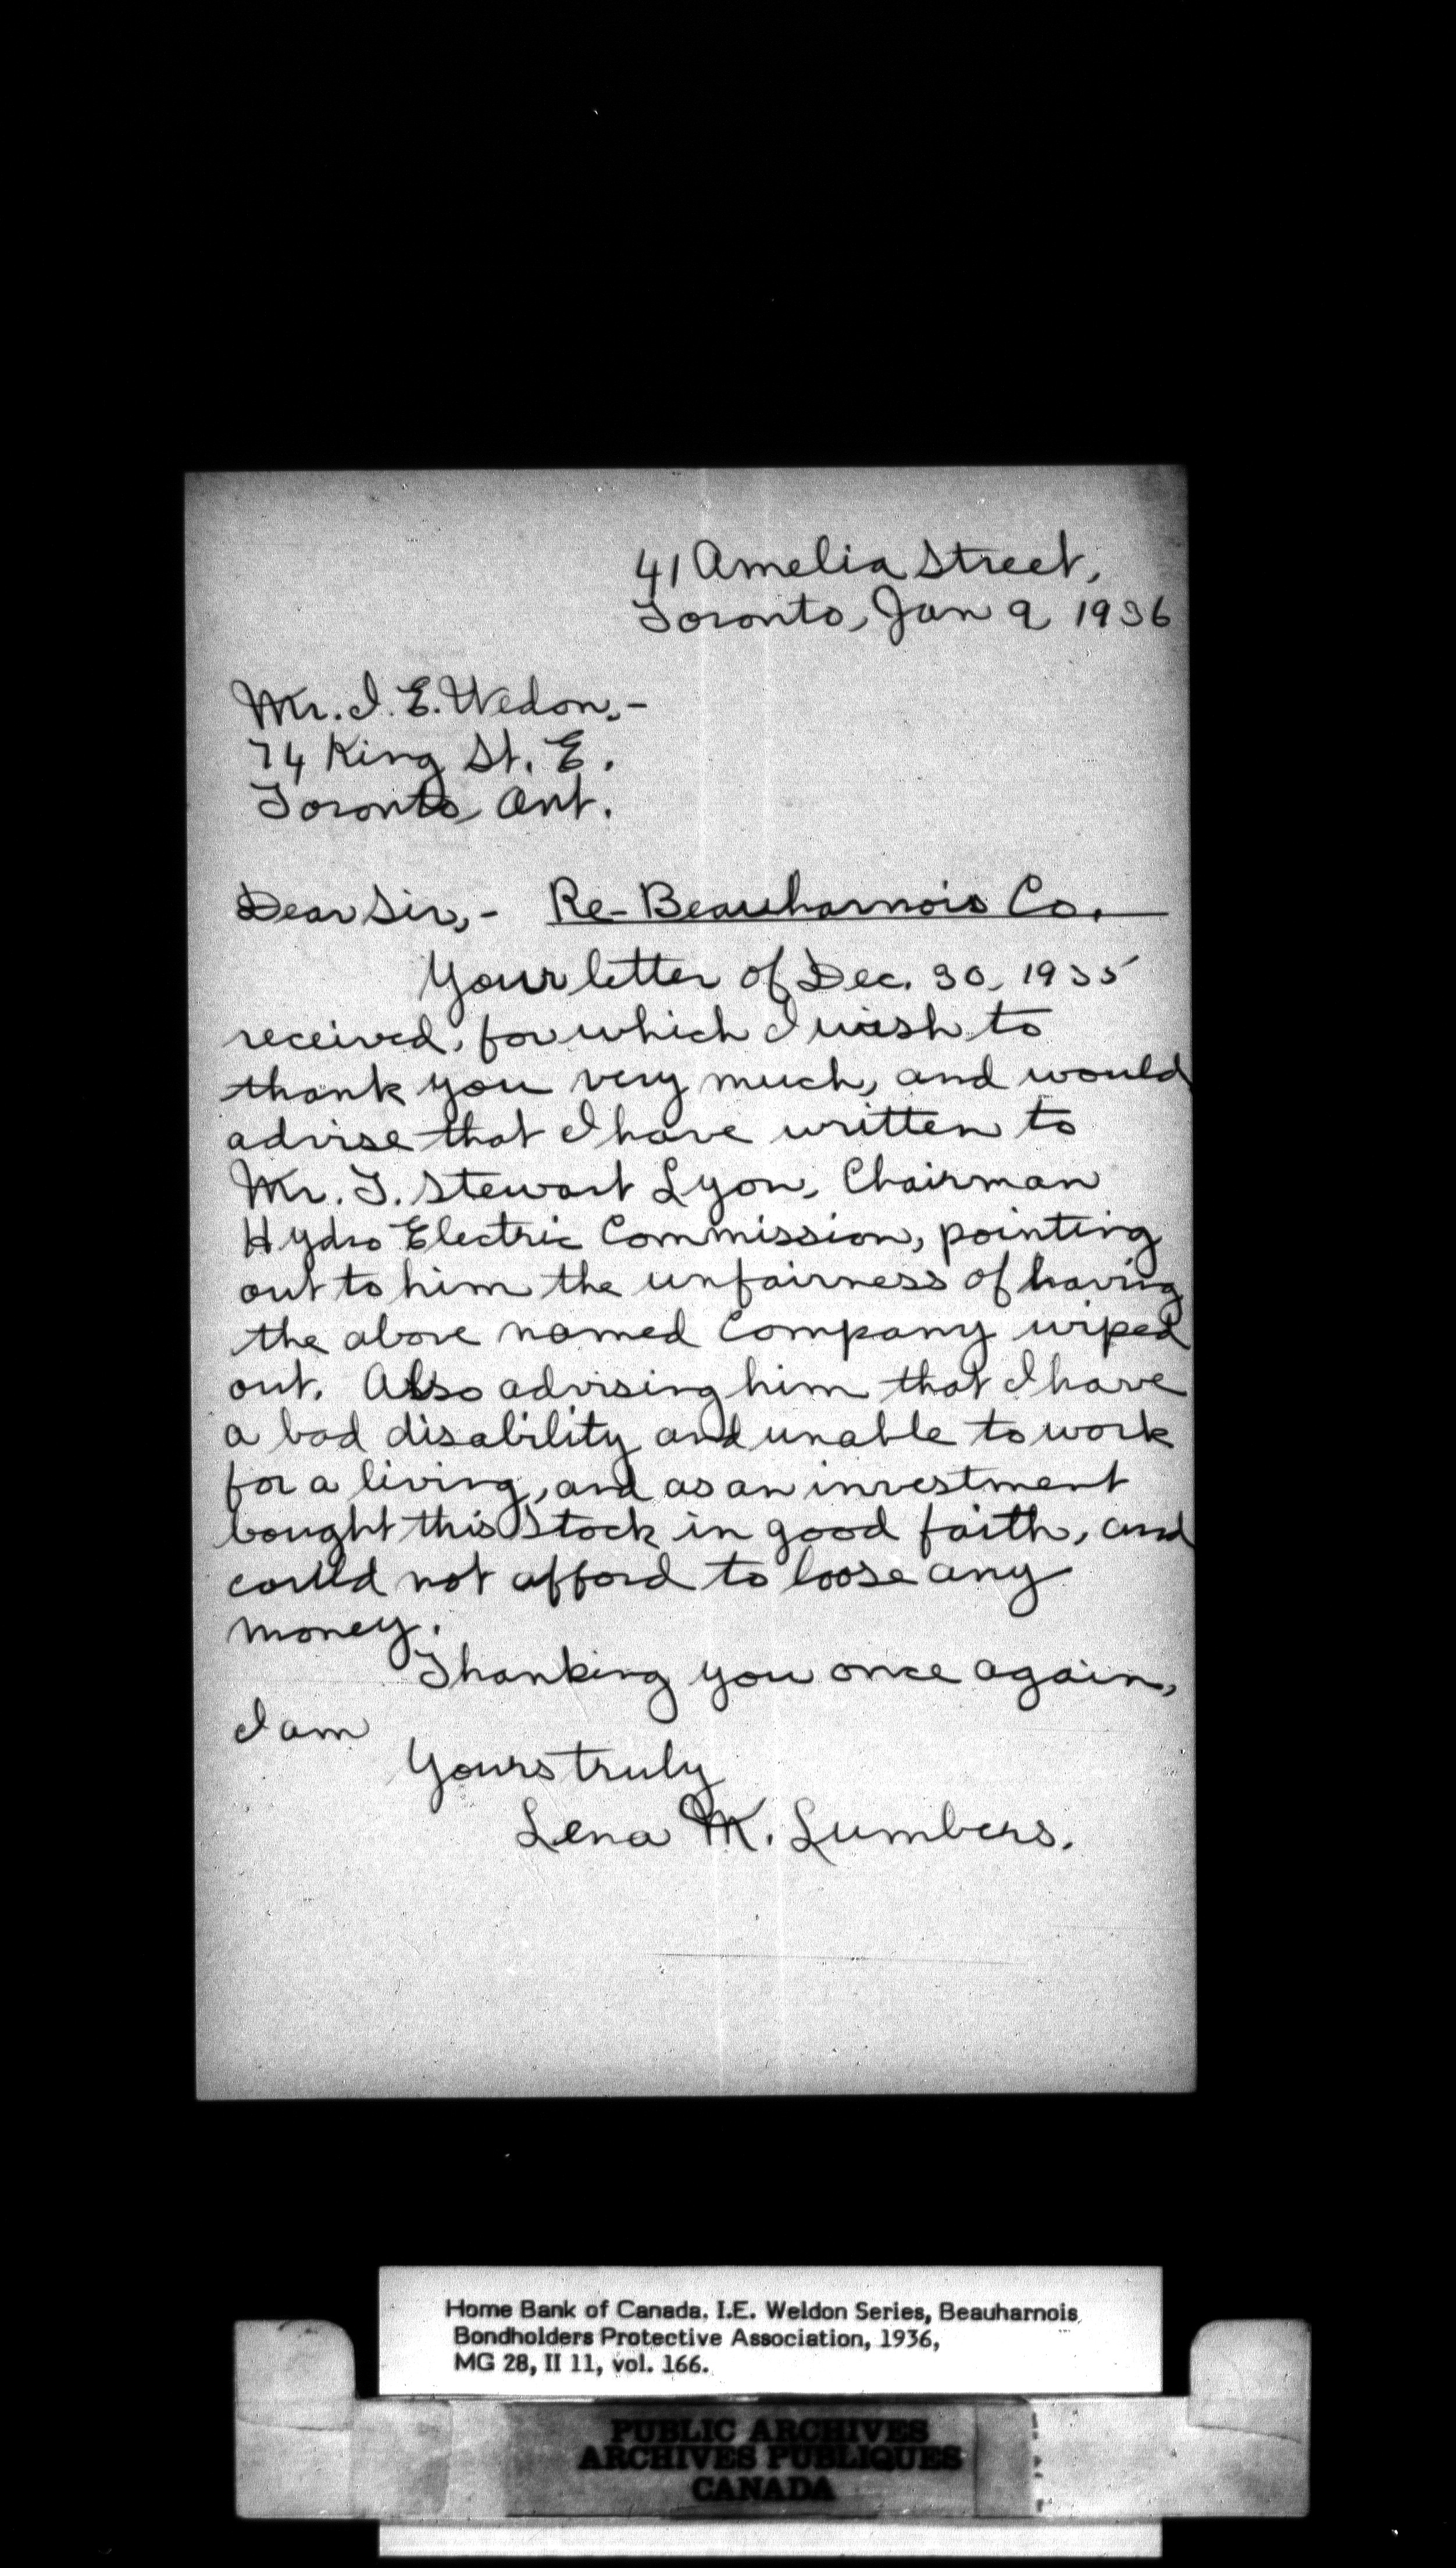 41 Amelia Street,
Toronto, Jan 9 1936
Mr. I. E. Wedon,-
74 King St. E.
Toronto, Ont.
Dear Sir,- Re- Beauharnois Co.
Your letter of Dec. 30, 1935
received, for which I wish to
thank you very much, and would
advise that I have written to
Mr. T. Stewart Lyon, Chairman
Hydro Electric Commission, pointing
out to him the unfairness of having
the above named Company wiped
out. Also advising him that I have
a bad disability and unable to work
for a living, and as an investment
bought this Stock in good faith, and
could not afford to loose any
money.
Thanking you once again,
I am
Yours truly
Lena M. Lumbers.
Home Bank of Canada. I.E. Weldon Series, Beauharnois
Bondholders Protective Association, 1936,
MG 28, II 11, vol. 166.
PUBLIC ARCHIVES
ARCHIVES PUBLIQUES
CANADA